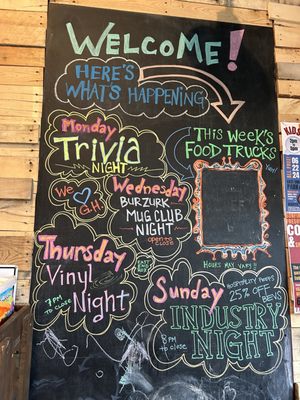 WELCOME!
HERE'S
WHAT'S HAPPENING
Monday
Trivia
NIGHT
THIS WEEK'S
FOOD TRUCKS
We ♡
G.H.
Wednesday
BURZURK
MUG CLUB
NIGHT
open to close
HOURS MAY VARY!!
Thursday
Vinyl
Night
7PM
to close
Sunday
HOSPITALITY PEEPS
25% OFF
BEVS
INDUSTRY
NIGHT
8PM
to close